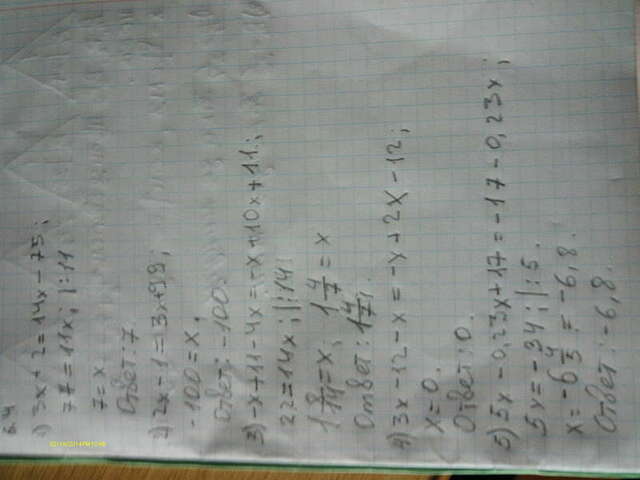 6.4
1) 3x + 2 = 14x - 75;
77 = 11x; |:11
7 = x
Ответ: 7
2) 2x - 1 = 3x + 99;
-100 = x.
Ответ: -100.
3) -x + 11 - 4x = -x + 10x + 11:;
22 = 14x; |:14
1 8/14 = x, 1 4/7 = x
Ответ: 1 4/7.
4) 3x - 12 - x = -x + 2x - 12;
x = 0.
Ответ: 0.
5) 5x - 0,23x + 17 = -17 - 0,23x;
5x = -34; |:5.
x = -6 4/5 = -6,8.
Ответ: -6,8.